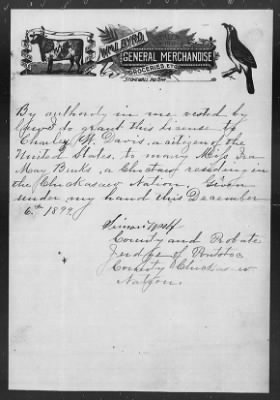 WM. L. BYRD,
GENERAL MERCHANDISE
GROCERIES, ETC.
By authority in me vested by
law I do grant this lisense to
Charley W. Davis, a citizen of the
United States, to marry Miss Ira
May Burks, a Choctaw residing in
the Chickasaw Nation. Given
under my hand this December
6th 1899
Simon Wolf
County and Probate
Judge of Pontotoc
County Chickasaw
Nation.